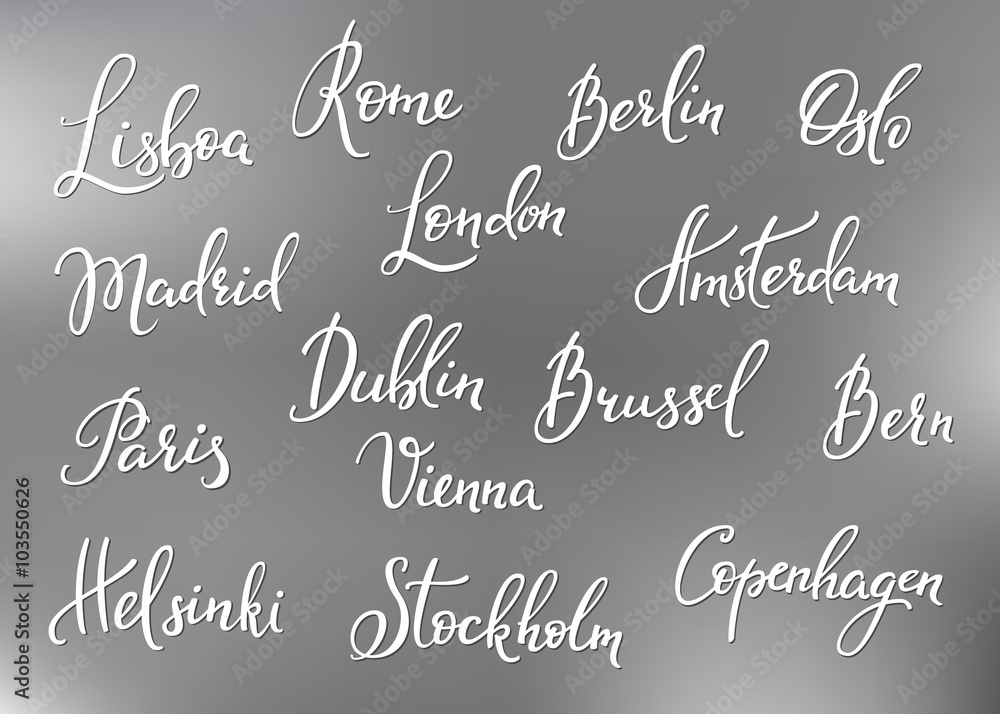 Lisboa
Rome
Berlin
Oslo
London
Madrid
Amsterdam
Dublin
Brussel
Bern
Paris
Vienna
Helsinki
Stockholm
Copenhagen
Adobe Stock | #103550626